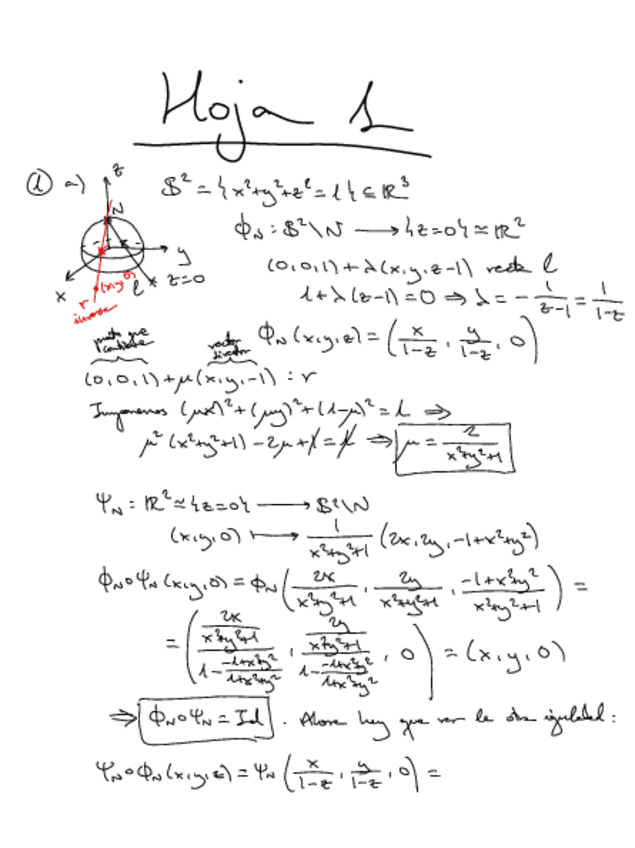 Hoja 1
① a) S² = {x²+y²+z² = 1} ⊆ ℝ³
z
N
y
x
l
z=0
(x,y,0)
r
inversa
ϕ_N : S²\N ⟶ {z=0} ≃ ℝ²
(0,0,1) + λ(x,y,z-1) recta l
1+λ(z-1) = 0 ⇒ λ = -1/(z-1) = 1/(1-z)
ϕ_N(x,y,z) = (x/(1-z), y/(1-z), 0)
punto que
vector director
(0,0,1) + μ(x,y,-1) : r
Imponemos (μx)²+(μy)²+(1-μ)² = 1 ⇒
μ²(x²+y²+1) - 2μ + 1 = 1 ⇒ μ = 2/(x²+y²+1)
Ψ_N : ℝ² ≃ {z=0} ⟶ S²\N
(x,y,0) ⟼ 1/(x²+y²+1) (2x, 2y, -1+x²+y²)
ϕ_N∘Ψ_N(x,y,0) = ϕ_N(2x/(x²+y²+1), 2y/(x²+y²+1), (-1+x²+y²)/(x²+y²+1)) =
= ((2x/(x²+y²+1))/(1-(-1+x²+y²)/(1+x²+y²)), (2y/(x²+y²+1))/(1-(-1+x²+y²)/(1+x²+y²)), 0) = (x,y,0)
⇒ ϕ_N∘Ψ_N = Id . Ahora hay que ver la otra igualdad:
Ψ_N∘ϕ_N(x,y,z) = Ψ_N(x/(1-z), y/(1-z), 0) =